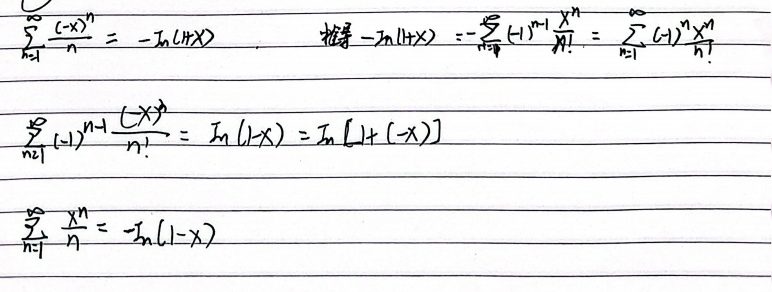 ∑_{n=1}^{∞} (-x)^n/n = -ln(1+x) 推导 -ln(1+x) = -∑_{n=1}^{∞} (-1)^{n-1} x^n/n! = ∑_{n=1}^{∞} (-1)^n x^n/n!
∑_{n=1}^{∞} (-1)^{n-1} (-x)^n/n! = ln(1-x) = ln[1+(-x)]
∑_{n=1}^{∞} x^n/n = -ln(1-x)